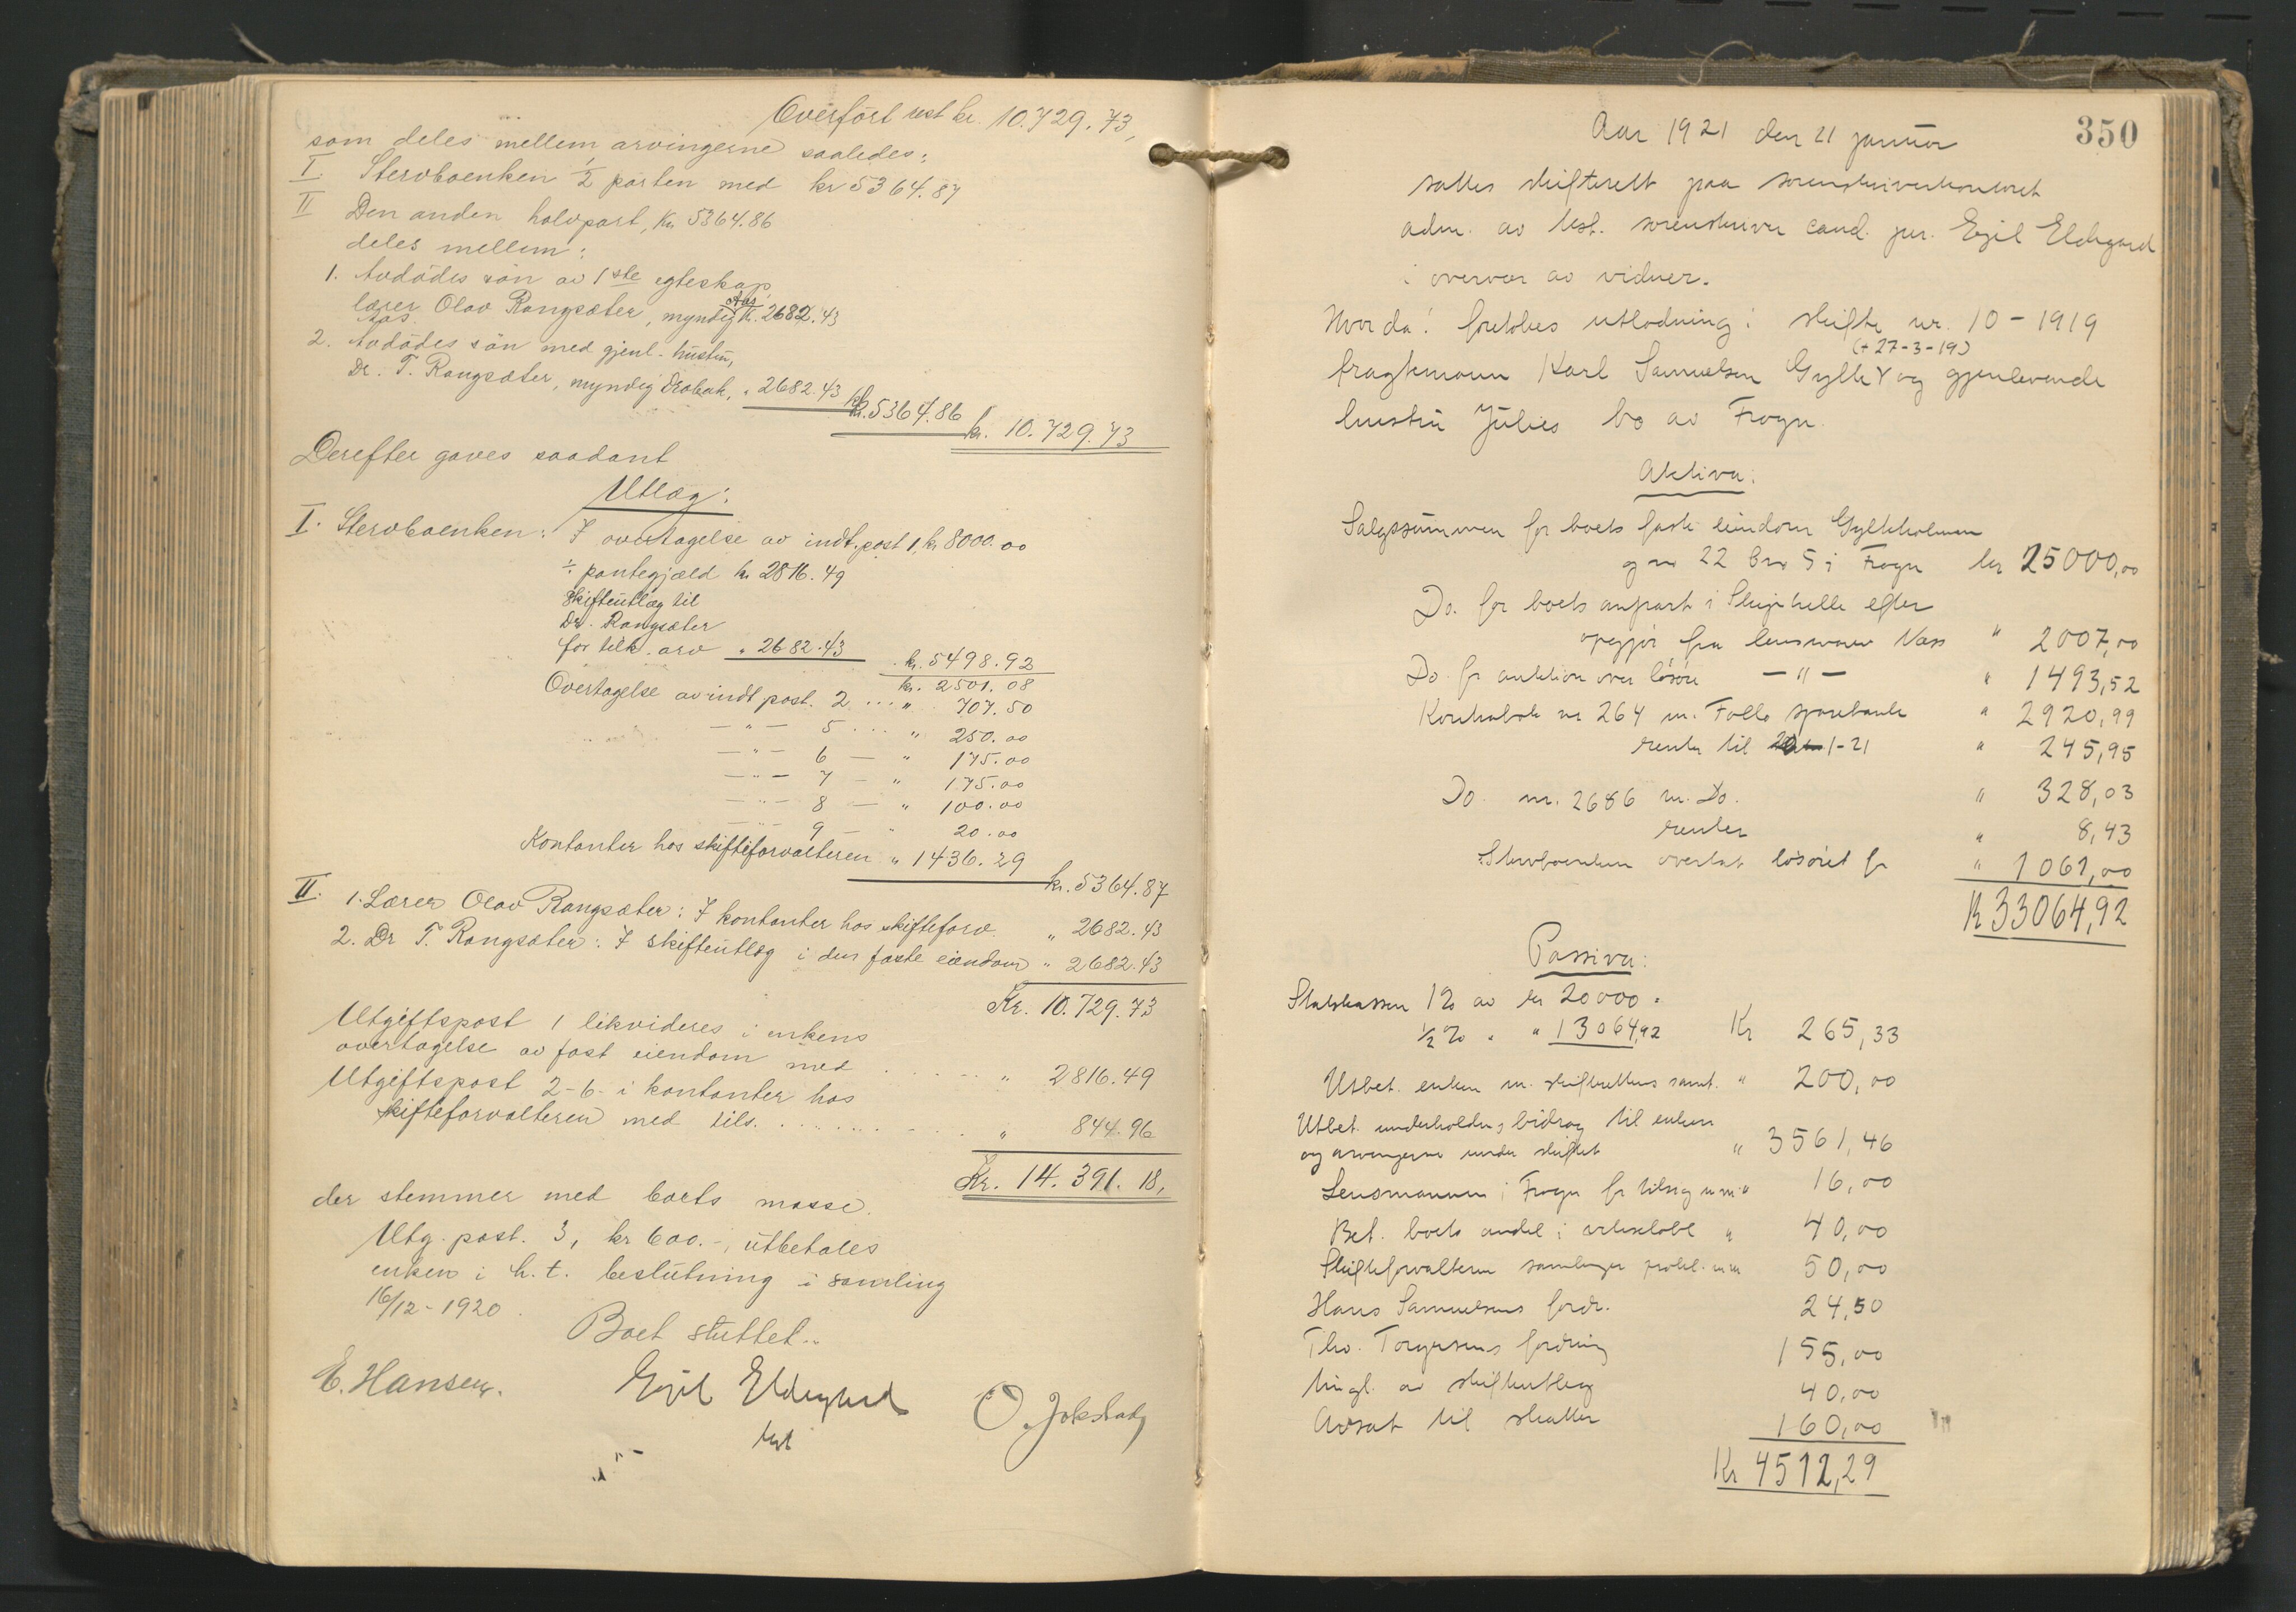 Overført rest kr. 10.729.73,
som deles mellem arvingerne saaledes:
I. Stervboenken 1/2 parten med kr 5364.87
II Den anden halvpart, kr. 5364.86
deles mellem:
1. Avdødes søn av 1ste egteskap,
lærer Olav Rangsæter, myndig Aas kr. 2682.43
Aas.
2. Avdødes søn med gjenl. hustru,
Dr. T. Rangsæter, myndig Drøbak, " 2682.43 kr. 5364.86
kr. 10.729.73
Derefter gaves saadant
Utlæg:
I. Stervboenken: I overtagelse av indt. post 1, kr 8000.00
÷ pantegjæld kr 2816.49
Skifteutlæg til
Dr. Rangsæter
for tilk. arv " 2682.43 kr. 5498.92
kr. 2501.08
Overtagelse av indt post. 2 ... " 707.50
— " — 5 ... " 250.00
— " — 6 — " 175.00
— " — 7 — " 175.00
— " — 8 — " 100.00
— " — 9 — " 20.00
Kontanter hos skifteforvalteren " 1436.29
kr. 5364.87
II. 1. Lærer Olav Rangsæter: I kontanter hos skifteforv. " 2682.43
2. Dr T. Rangsæter: I skifteutlæg i den faste eiendom " 2682.43
Kr. 10.729.73
Utgiftspost 1 likvideres i enkens
overtagelse av fast eiendom med . . . . . " 2816.49
Utgiftspost 2-6- i kontanter hos
skifteforvalteren med tils. . . . . . . . " 844.96
Kr. 14.391.18,
der stemmer med boets masse.
Utg. post. 3, kr 600.-, utbetales
enken i h.t. beslutning i samling
16/12-1920.
Boet sluttet.
E. Hansen. Egil Eldegard O. Jokstad
kst
350
Aar 1921 den 21 januar
sattes skifterett paa sorenskriverkontoret
adm. av kst. sorenskriver cand. jur. Egil Eldegard
i overvær av vidner.
Hvorda! foretokes utlodning i skifte nr. 10 - 1919
(+ 27-3-19)
fragtemann Karl Samuelsen Gylte og gjenlevende
hustru Julies bo av Frogn.
Aktiva:
Salgssummen for boets faste eiendom Gylteholmen
gnr 22 bnr 5 i Frogn kr 25000,00
Do. for boets anpart i Skiphelle efter
opgjør fra lensmann Næss " 2007,00
Do. for auktion over løsøre — " — " 1493,52
Kontrabok nr 264 m. Follo sparebank " 2920,99
renter til 1-21 " 245,95
Do. nr. 2686 m. Do. " 328,03
renter " 8,43
Stervboenken overtat løsøret for " 1061,00
Kr 33064,92
Passiva:
Statskassen 1% av kr 20000.
1/2 % " " 13064,92 Kr 265,33
Utbet. enken m. skifterettens samt. " 200,00
Utbet. underholdnsbidrag til enken
og arvingerne under skiftet " 3561,46
Lensmannen i Frogn for tilsyn m.m. " 16,00
Bet. boets andel i " 40,00
Skifteforvalteren samlinger protok. m.m. 50,00
Hans Samuelsens fordr. 24,50
Tho. Torgersens fordring 155,00
tingl. av skifteutlæg 40,00
Avsat til skatter 160,00
Kr 4512,29